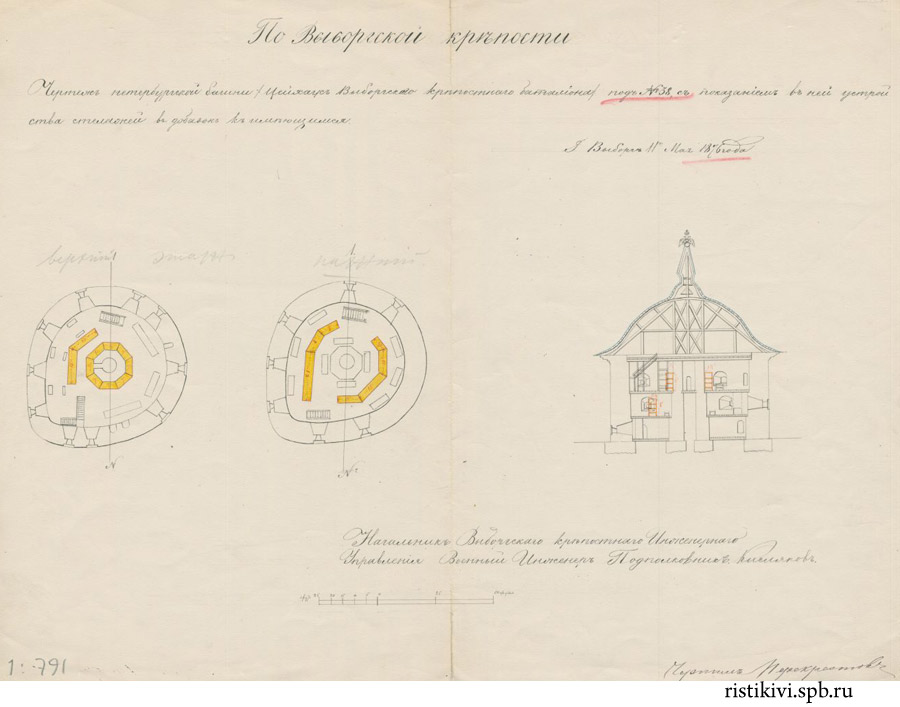 По Выборгской крѣпости
Чертежъ петербургской башни (Цейхаузъ Выборгскаго крѣпостнаго баталіона) подъ № 38, съ показаніемъ въ ней устрой
ства стелажей въ добавокъ къ имѣющимся.
Г. Выборгъ 11 Мая 1876 года
верхній этажъ
нижній
N
N
Начальникъ Выборгскаго крѣпостнаго Инженернаго
Управленія Военный Инженеръ Подполковникъ
1:791
Чертилъ
ristikivi.spb.ru